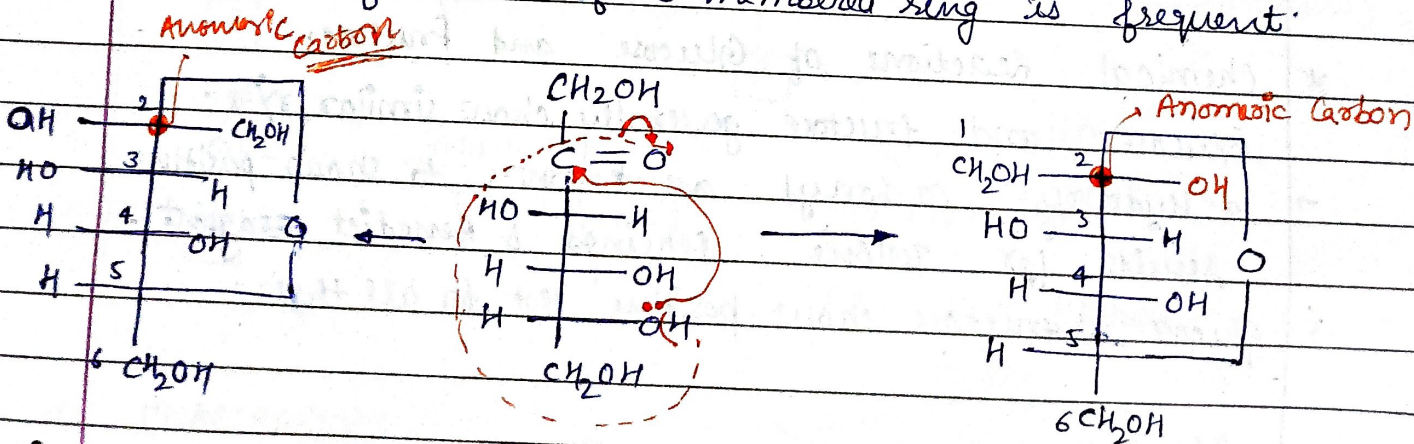 numbered ring is frequent.
Anomeric carbon
2
OH CH2OH
3
HO H
4
H OH
O
H 5
6 CH2OH
CH2OH
C = O
HO H
H OH
H OH
CH2OH
Anomeric Carbon
1
CH2OH 2 OH
HO 3 H
4
H OH
O
H 5
6 CH2OH